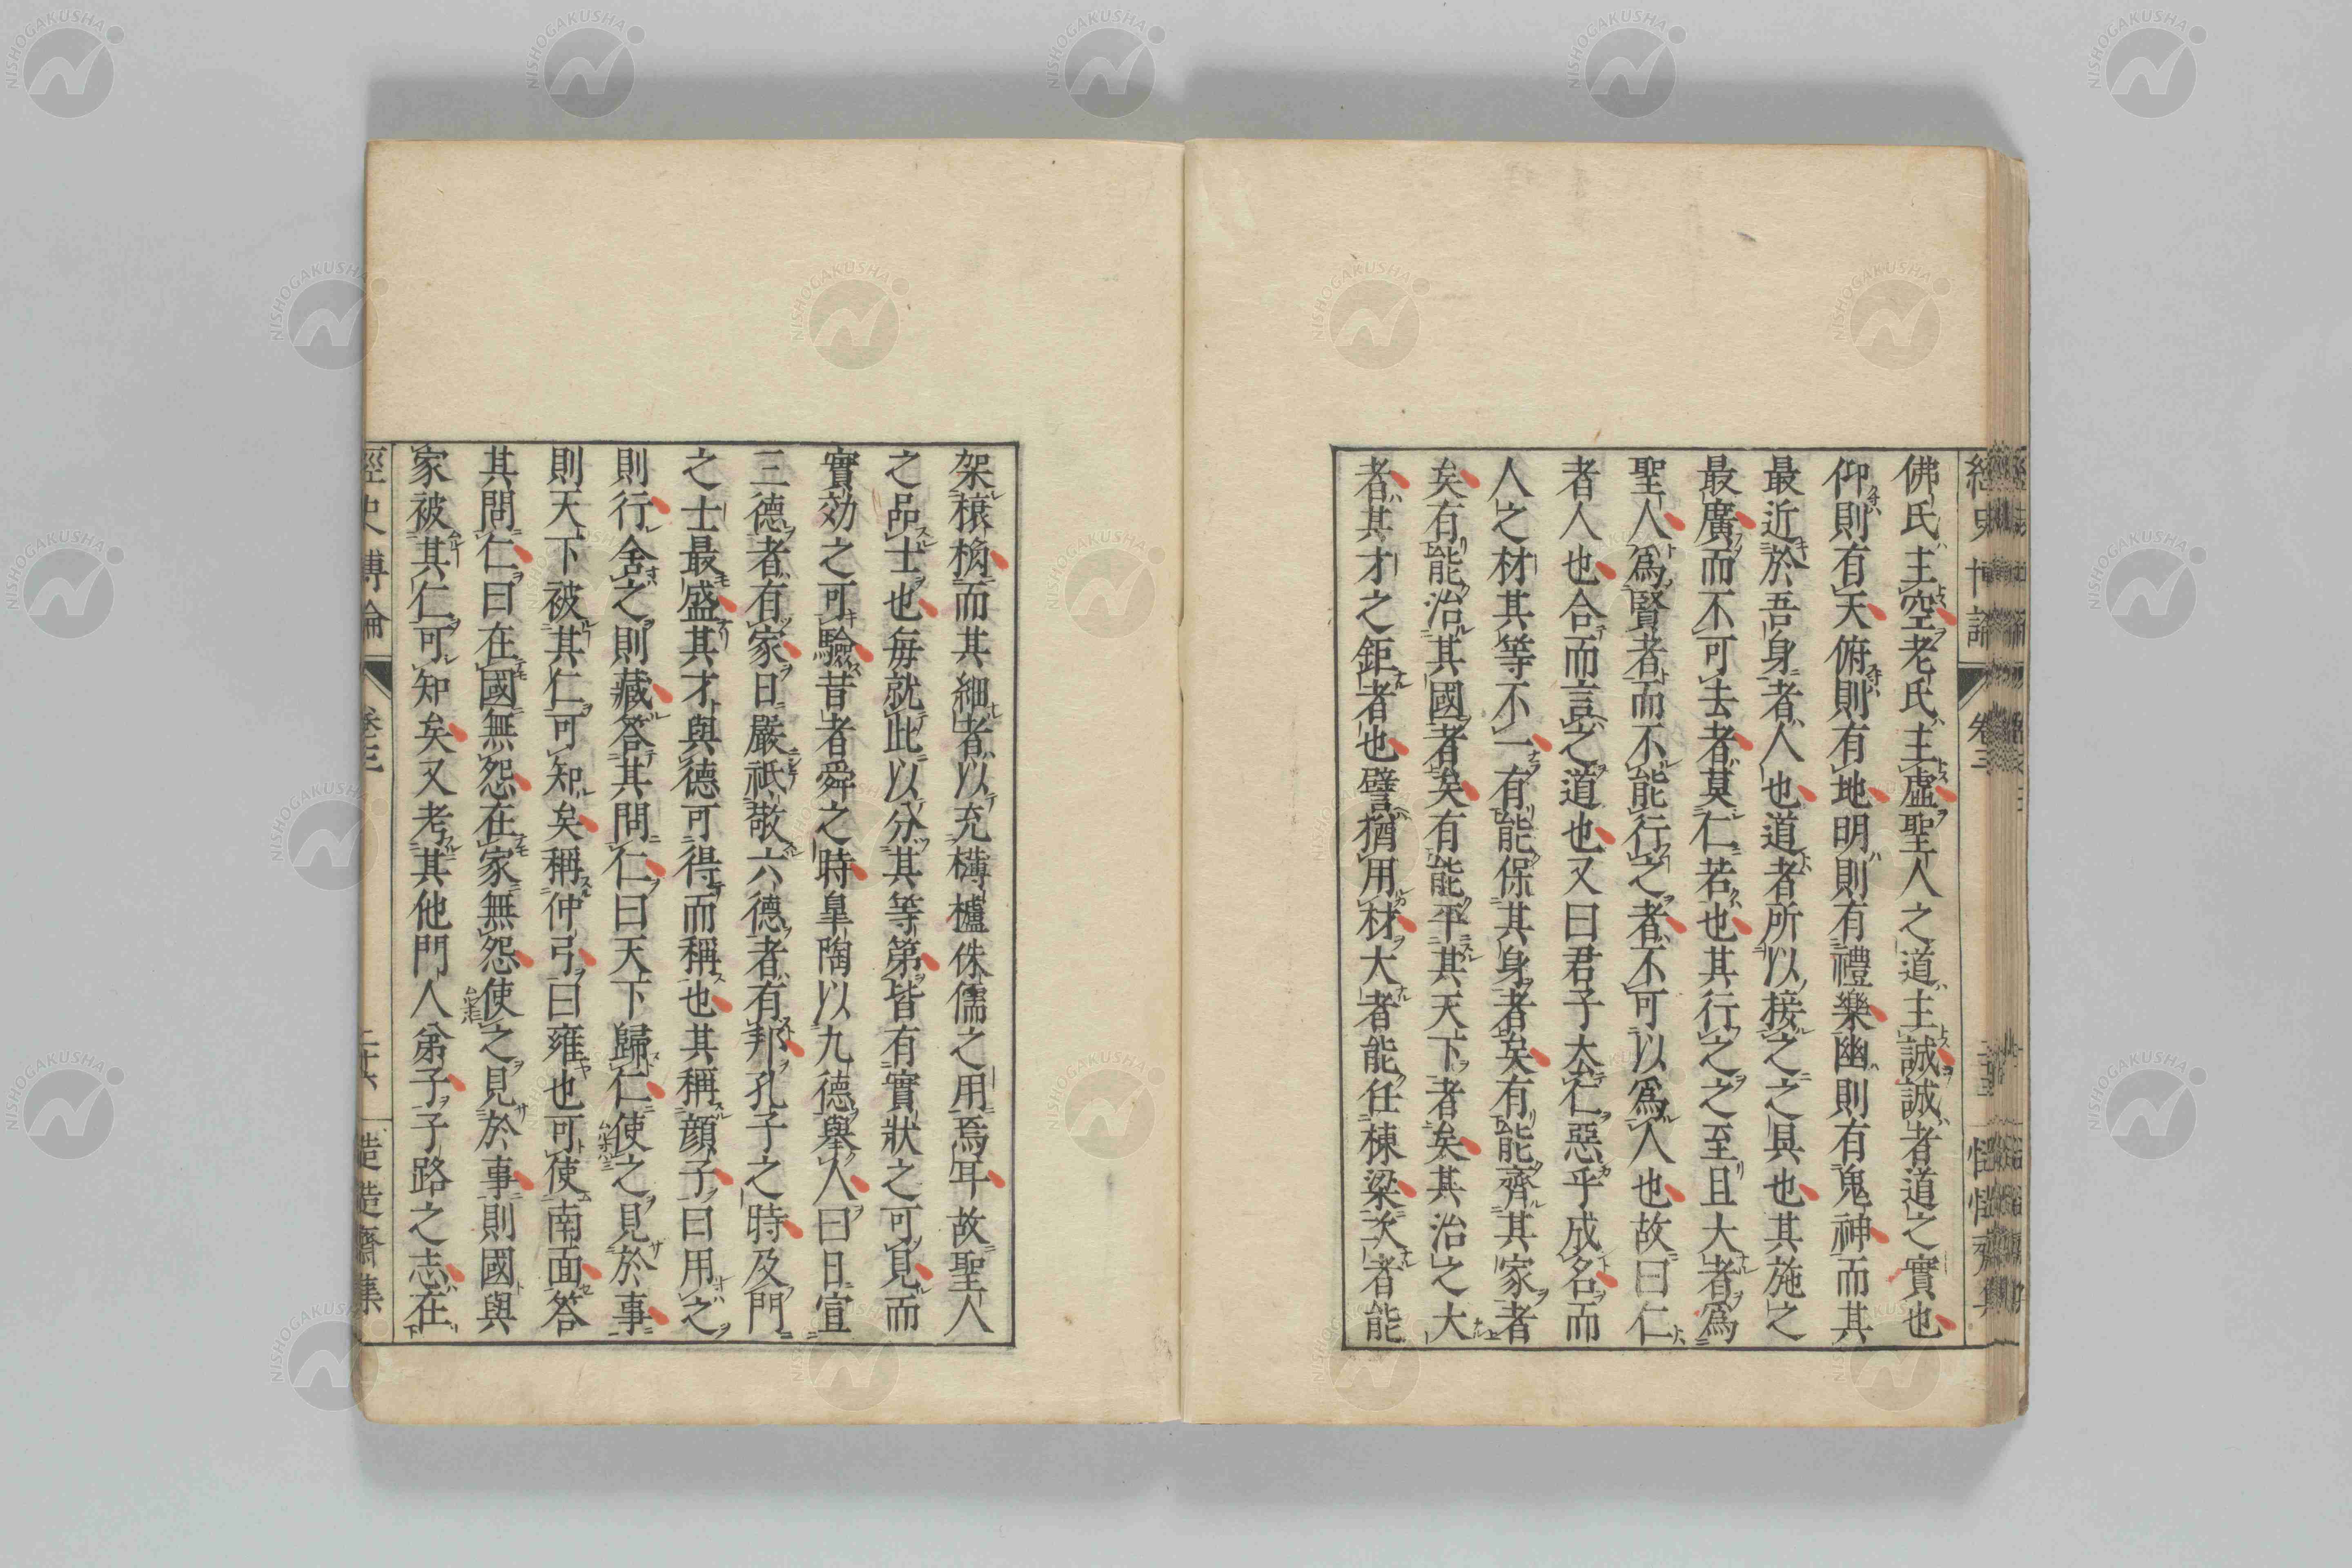 佛氏主空老氏主虛聖人之道主誠誠者道之實也
仰則有天俯則有地明則有禮樂幽則有鬼神而其
最近於吾身者人也道者所以接之之具也其施之
最廣而不可去者莫仁若也其行之之至且大者爲
聖人爲賢者而不能行之者不可以爲人也故曰仁
者人也合而言之道也又曰君子去仁惡乎成名而
人之材其等不一有能保其身者矣有能齊其家者
矣有能治其國者矣有能平其天下者矣其治之大
者其才之鉅者也譬猶用材大者能任棟梁次者能
架榱桷而其細者以充欂櫨侏儒之用焉耳故聖人
之品士也毎就此以分其等第皆有實狀之可見而
實効之可驗昔者舜之時皐陶以九德擧人曰日宣
三德者有家日嚴祗敬六德者有邦孔子之時及門
之士最盛其才與德可得而稱也其稱顔子曰用之
則行舍之則藏答其問仁曰天下歸仁使之見於事
則天下被其仁可知矣稱仲弓曰雍也可使南面答
其問仁曰在國無怨在家無怨使之見於事則國與
家被其仁可知矣又考其他門人弟子子路之志在
經史博論
卷三
NISHOGAKUSHA